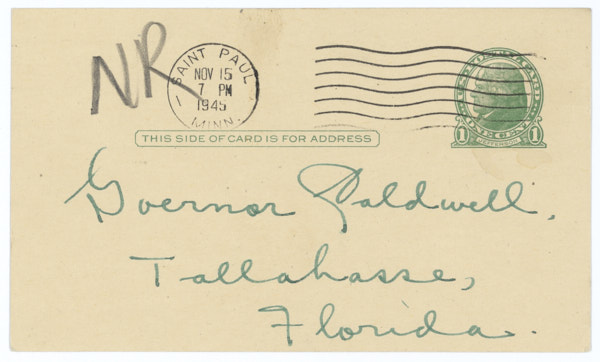 NR
SAINT PAUL
NOV 15
7 PM
1945
MINN.
1
THIS SIDE OF CARD IS FOR ADDRESS
U.S. POSTAGE
1 ONE CENT 1
JEFFERSON
Governor Caldwell,
Tallahasse,
Florida.